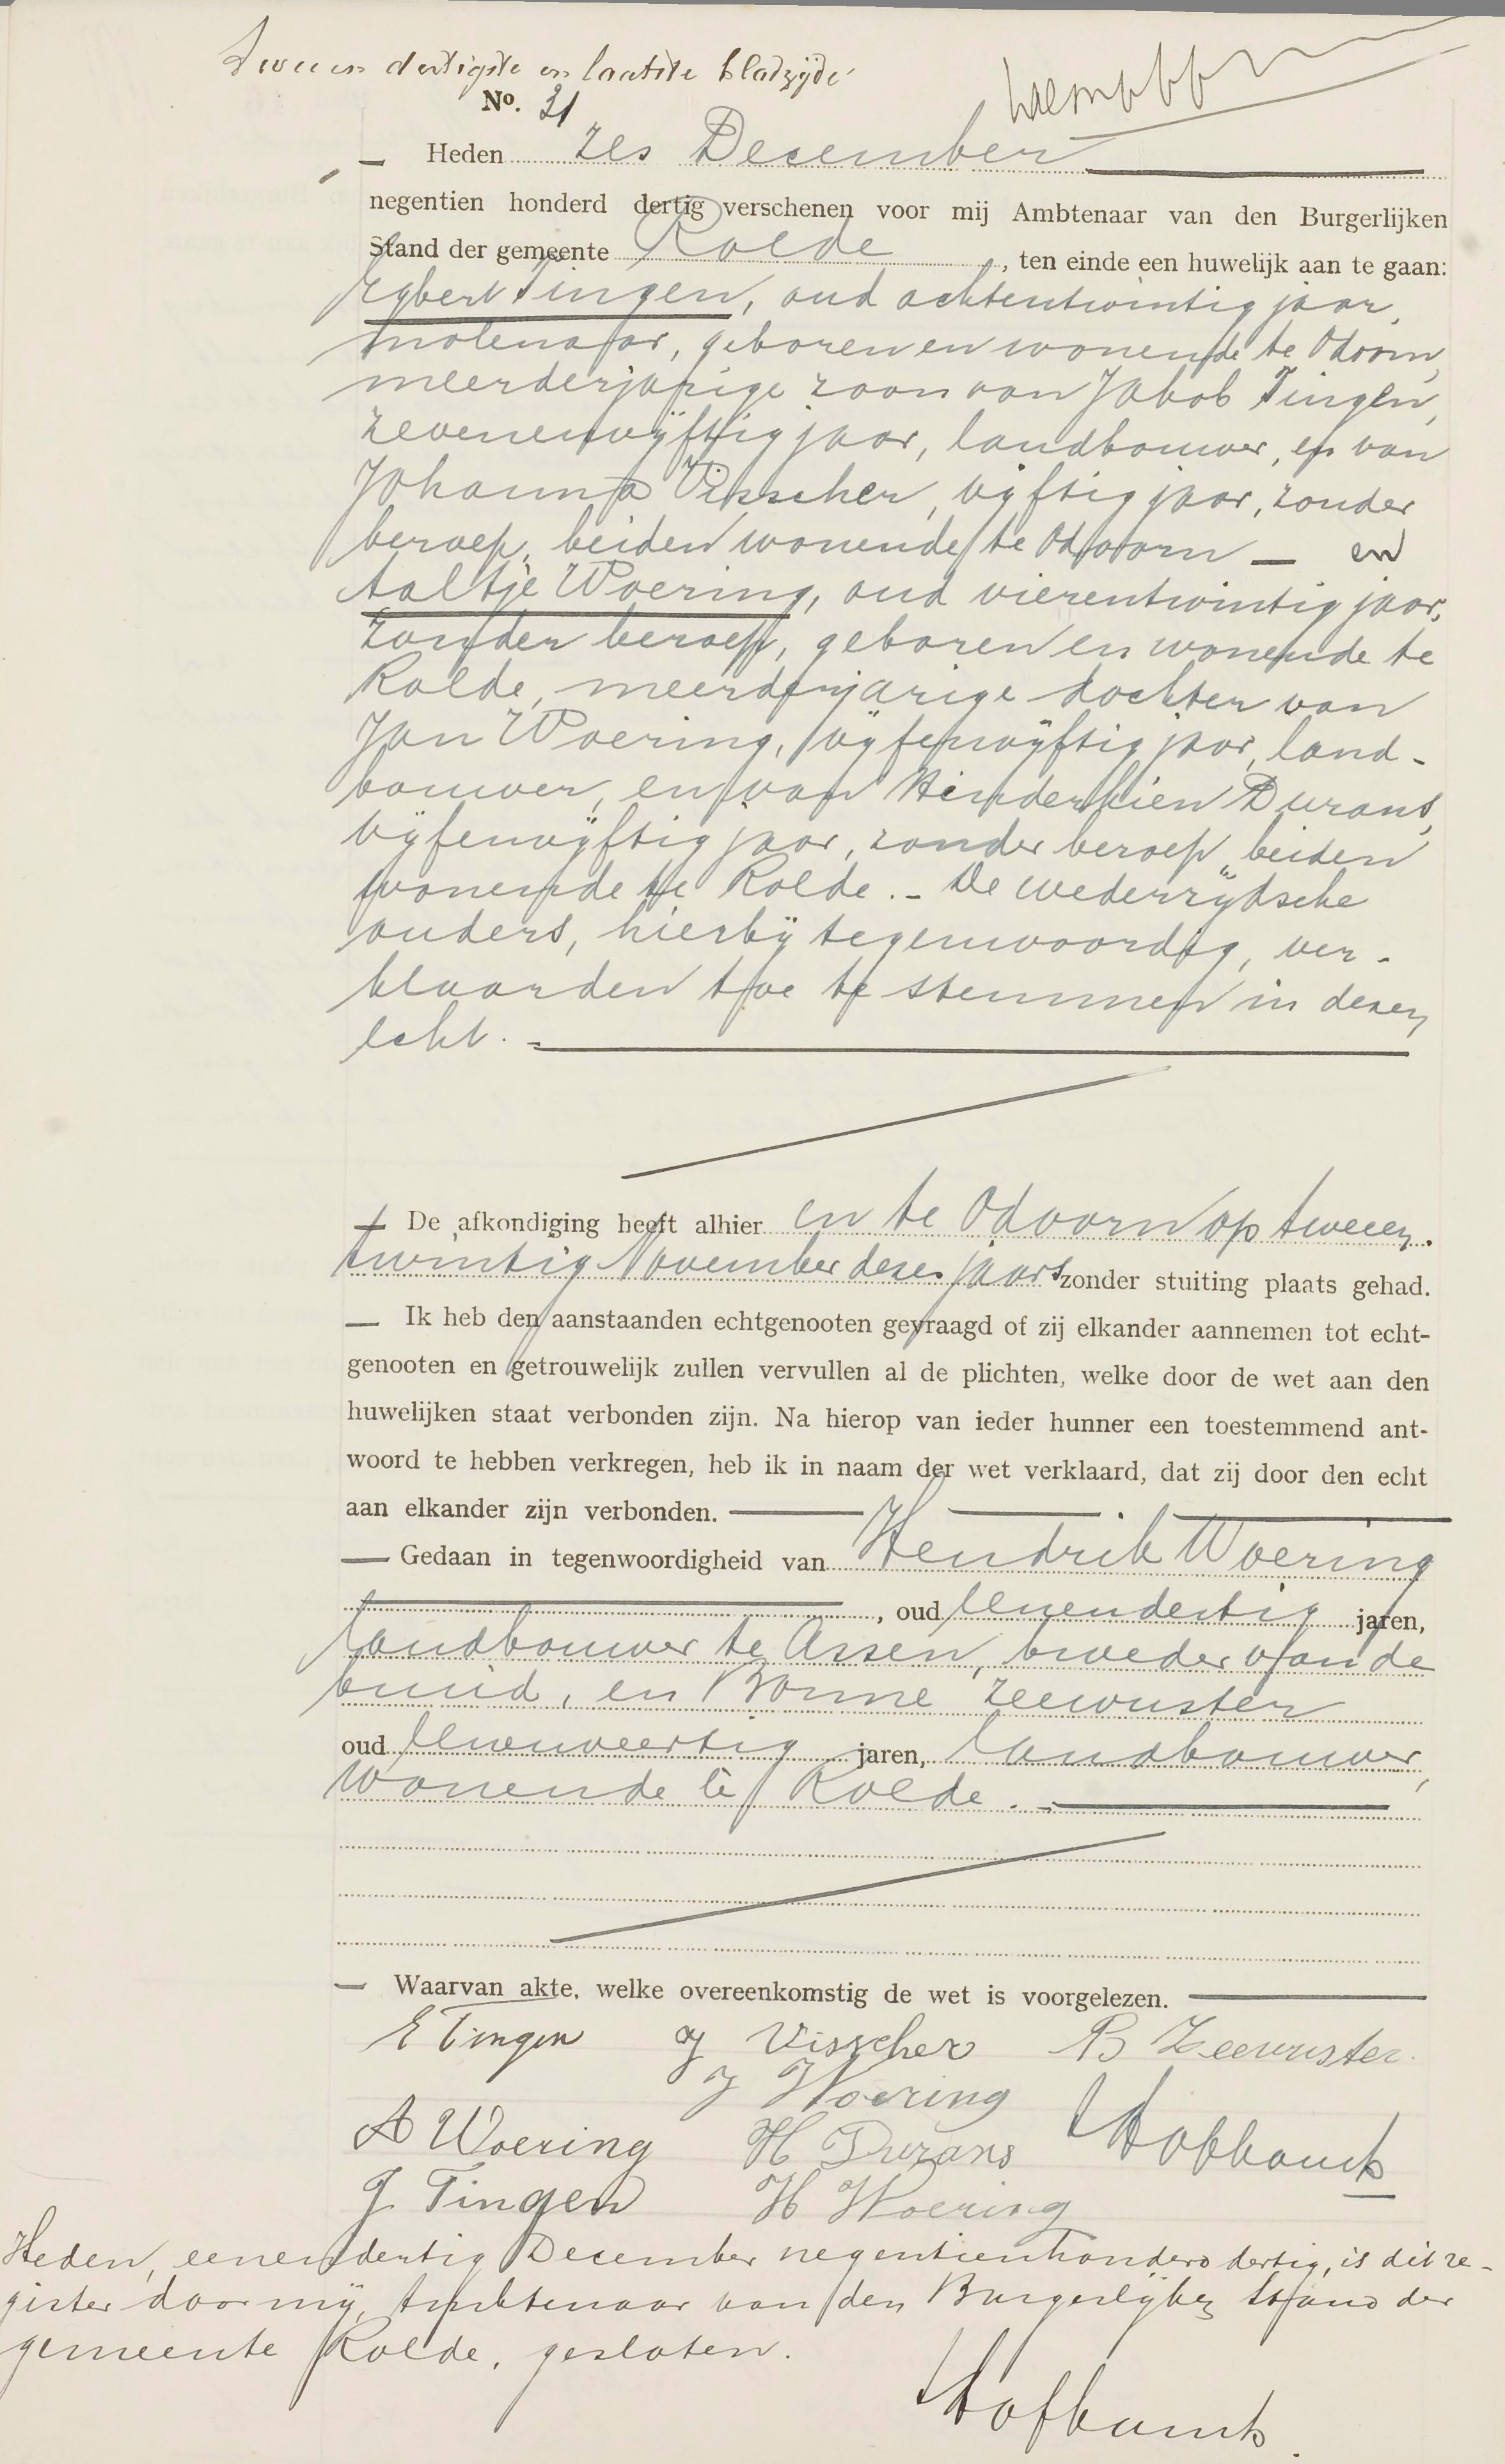 Tweeen dertigste en laatste bladzijde
No. 31
Heden zes December
negentien honderd dertig verschenen voor mij Ambtenaar van den Burgerlijken
Stand der gemeente Rolde, ten einde een huwelijk aan te gaan:
Egbert Tingen, oud achtentwintig jaar,
molenaar, geboren en wonende te Odoorn,
meerderjarige zoon van Jakob Tingen,
zevenenvijftig jaar, landbouwer, en van
Johanna Visscher, vijftig jaar, zonder
beroep, beiden wonende te Odoorn — en
Aaltje Woering, oud vierentwintig jaar,
zonder beroep, geboren en wonende te
Rolde, meerderjarige dochter van
Jan Woering, vijfenvijftig jaar, land-
bouwer, en van Hinderkien Durans,
vijfenvijftig jaar, zonder beroep, beiden
wonende te Rolde. - De wederzijdsche
ouders, hierbij tegenwoordig, ver-
klaarden toe te stemmen in dezen
echt. -
De afkondiging heeft alhier en te Odoorn op tweeen-
twintig November dezes jaars zonder stuiting plaats gehad.
— Ik heb den aanstaanden echtgenooten gevraagd of zij elkander aannemen tot echt-
genooten en getrouwelijk zullen vervullen al de plichten, welke door de wet aan den
huwelijken staat verbonden zijn. Na hierop van ieder hunner een toestemmend ant-
woord te hebben verkregen, heb ik in naam der wet verklaard, dat zij door den echt
aan elkander zijn verbonden. —
— Gedaan in tegenwoordigheid van Hendrik Woering
, oud eenendertig jaren,
landbouwer te Assen, broeder van de
bruid, en Bonne Zeewuster
oud eenenveertig jaren, landbouwer,
wonende te Rolde. -
— Waarvan akte, welke overeenkomstig de wet is voorgelezen. —
E Tingen J Visscher B Zeewuster.
J Woering
A Woering H Durans
J. Tingen H Woering
Heden, eenendertig December negentienhonderd dertig, is dit re-
gister door mij, Ambtenaar van den Burgerlijken Stand der
gemeente Rolde, gesloten.